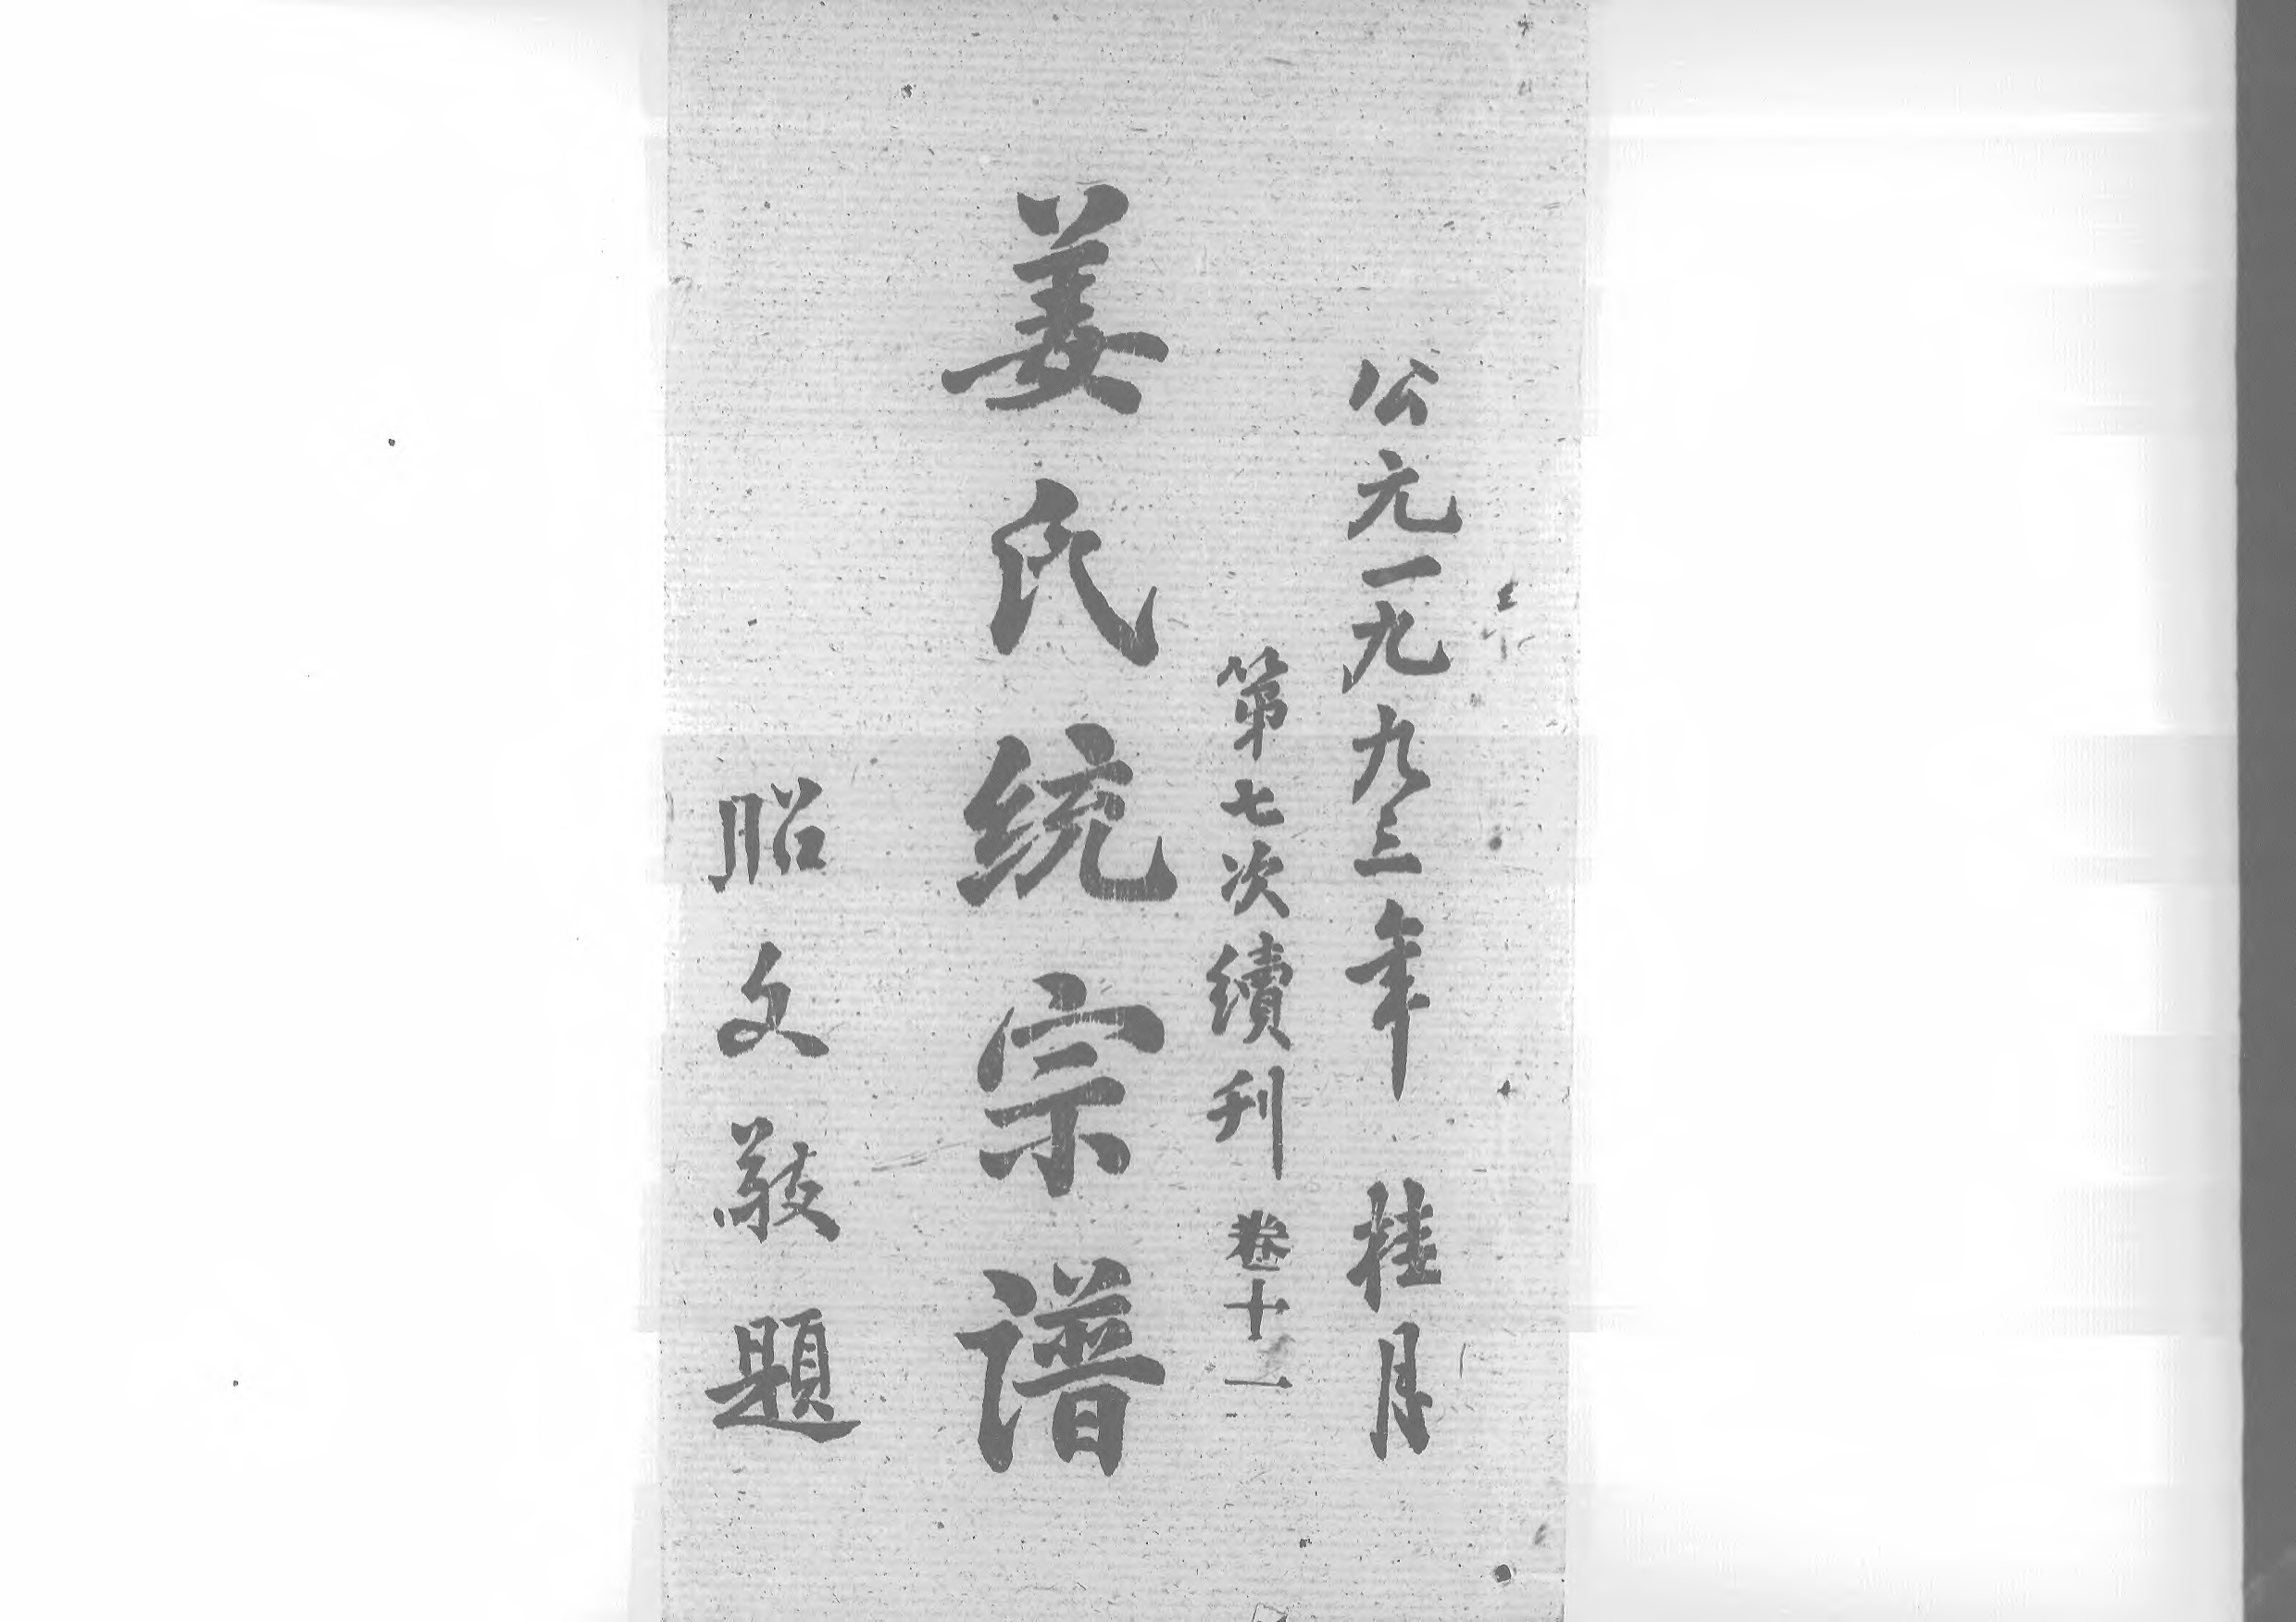 公元一九九三年 桂月
第七次續刊 卷十一
姜氏统宗谱
昭文敬題